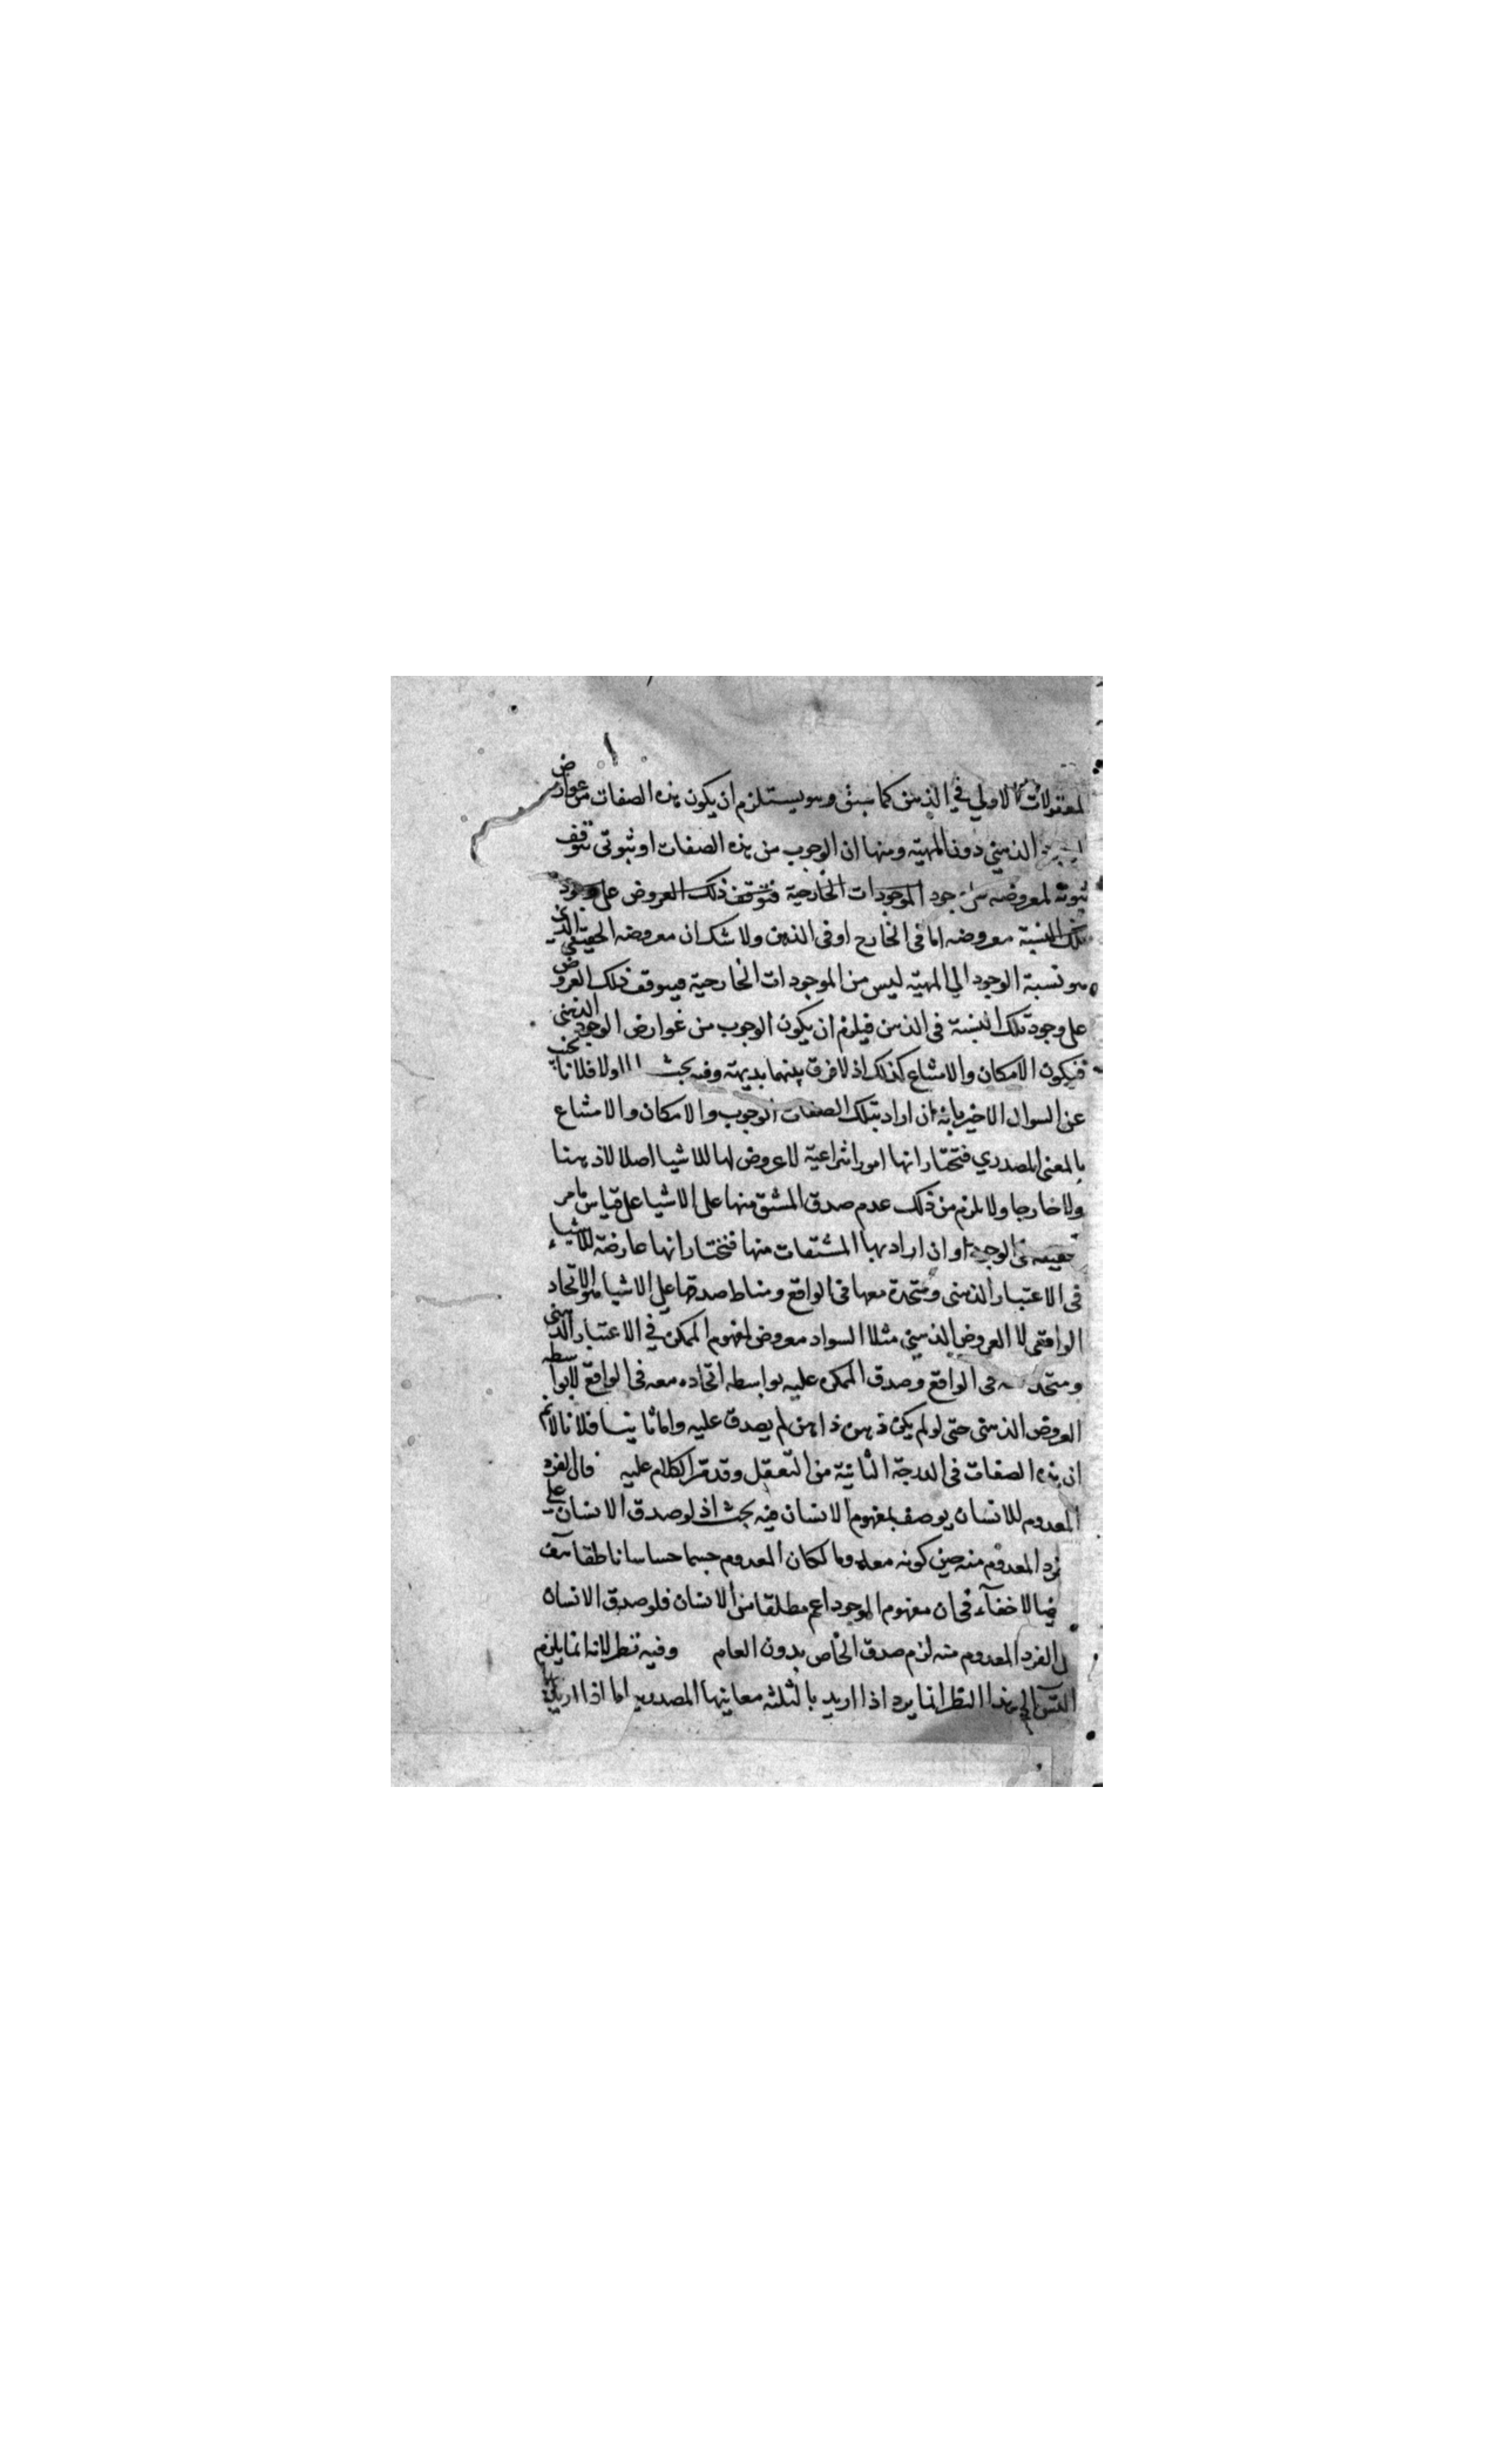 المعقولات الاولي في الذهن كما سبق وهو يستلزم ان يكون هذه الصفات من عوارض
الذهني دون المهية ومنها ان الوجوب من هذه الصفات اوثبوتى توقف
ثبوته لمعروضه جود الموجودات الخارجية فتوقف ذلك العروض على وجود
تلك النسبة معروضه اما فى الخارج او فى الذهن ولا شك ان معروضه الحقيقي الذى
هو نسبة الوجود الي المهية ليس من الموجودات الخارجية فيتوقف ذلك العروض
على وجود تلك النسبة فى الذهن فيلزم ان يكون الوجوب من عوارض الوجود الذهنى
فيكون الامكان والامتناع كذلك اذ لا فرق بينهما بديهة وفيه بحث اولا فلانا نجيب
عن السوال الاخير بانه ان اراد بتلك الصفات الوجوب والامكان والامتناع
بالمعنى المصدري فنختار انها امور انتزاعية لا عروض لها للاشيا اصلا لا ذهنا
ولا خارجا ولا يلزم من ذلك عدم صدق المشتق منها على الاشيا على قياس ما مر
الوجود وان اراد بها المشتقات منها فنختار انها عارضة للاشياء
فى الاعتبار الذهنى ومتحدة معها فى الواقع ومناط صدقها على الاشيا هو الاتحاد
الواقعى لا العروض الذهني مثلا السواد معروض لمفهوم الممكن في الاعتبار الذهنى
ومتحد معه فى الواقع وصدق الممكن عليه بواسطه اتحاده معه فى الواقع لا بواسطه
العروض الذهنى حتى لو لم يكن ذهن ذاهن لم يصدق عليه واما ثانيا فلانا لانم
ان هذه الصفات فى الدرجة الثانية من التعقل وقد مر الكلام عليه قال الفرد
المعدوم للانسان يوصف بمفهوم الانسان فيه بحث اذ لو صدق الانسان على
فرد المعدوم منه حين كونه معدوما لكان المعدوم جسما حساسا ناطقا
يضا لا خفآء فى ان مفهوم الموجود اعم مطلقا من الانسان فلو صدق الانسان
على الفرد المعدوم منه لزم صدق الخاص بدون العام وفيه نظر لانه انما يلزم
هذا النظر انما يرد اذا اريد بالثلثه معانيها المصدرية اما اذا اريد